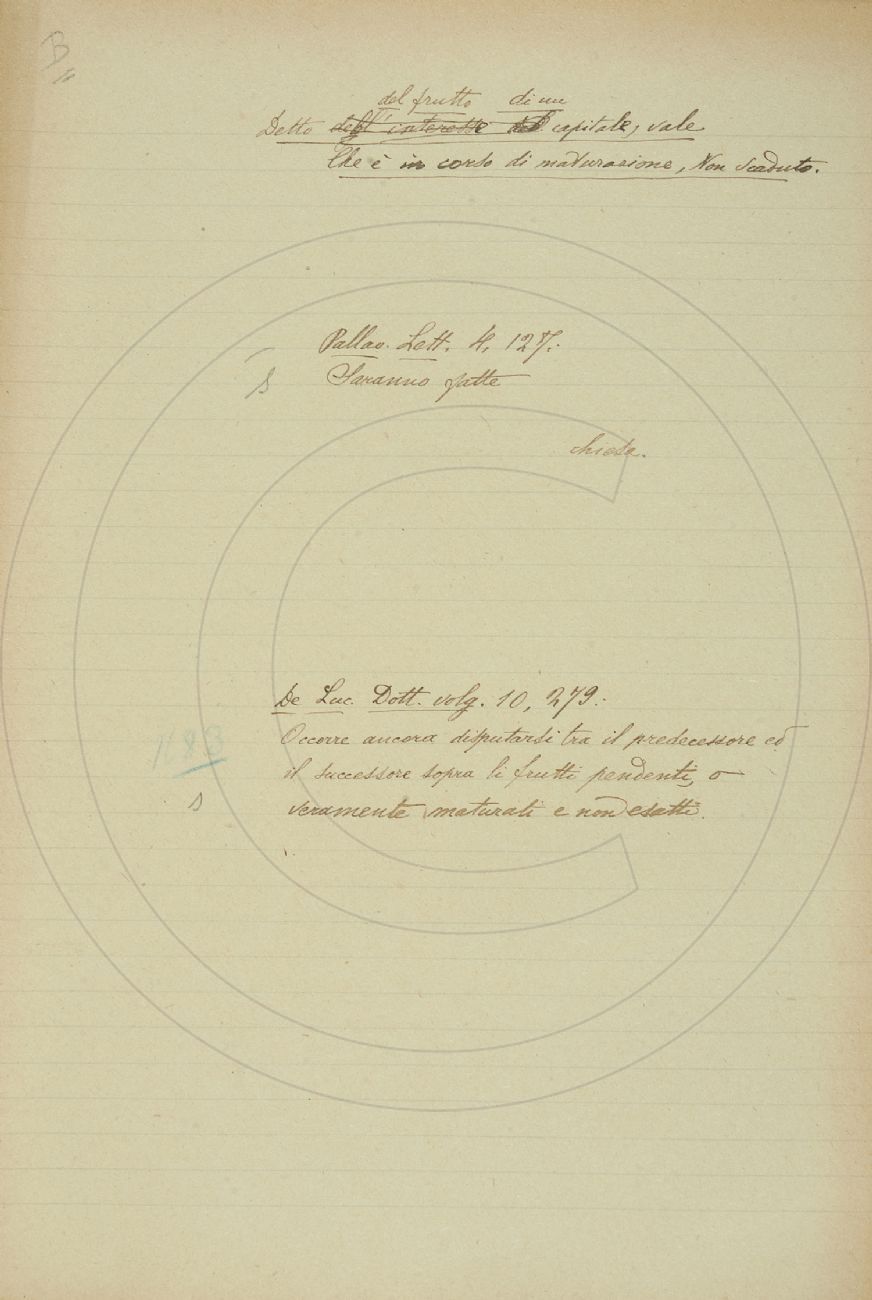 B
del frutto di un
Detto dell'interesse del capitale, vale
Che è in corso di maturazione, Non scaduto.
Pallav. Lett. 4, 127.
S
Saranno fatte
chiesa.
De Luc. Dott. volg. 10, 279.
Occorre ancora disputarsi tra il predecessore ed
il successore sopra li frutti pendenti, o
veramente maturati e non esatti.
S